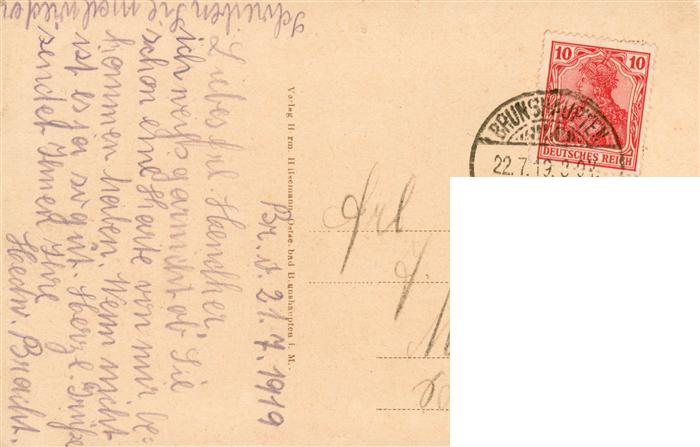 Br. d. 21.7.1919
Liebes Frl. Haendher,
ich weiß garnicht ob Sie
schon eine Karte von mir be=
kommen haben. Wenn nicht
ist es ja so gut. Herzl. Grüße
sendet Ihnen Ihre
Hedw. Bracht.
Schreiben Sie mal wieder
Verlag Herm. Hilsemann, Ostseebad Brunshaupten i. M.
10 10
DEUTSCHES REICH
BRUNSHAUPTEN
22.7.19.
Frl